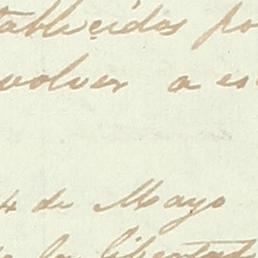 tablecidos po
volver a es
4 de Mayo
de la libertad